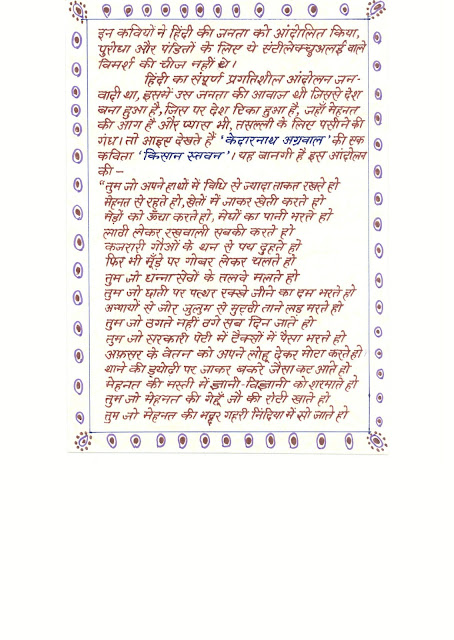 इन कवियों ने हिंदी की जनता को आंदोलित किया,
पुरोधा और पंडितों के लिए ये संटीलेक्चुअलई वाले
विमर्श की चीज नहीं थे।
हिंदी का संपूर्ण प्रगतिशील आंदोलन जन-
वादी था, इसमें उस जनता की आवाज थी जिससे देश
बना हुआ है, जिस पर देश टिका हुआ है, जहाँ मेहनत
की आग है और प्यास भी, तसल्ली के लिए पसीने की
गंध। तो आइए देखते हैं 'केदारनाथ अग्रवाल' की एक
कविता 'किसान स्तवन'। यह बानगी है इस आंदोलन
की –
"तुम जो अपने हाथों में विधि से ज्यादा ताकत रखते हो
मेहनत से रहते हो, खेतों में जाकर खेती करते हो
मेड़ों को ऊँचा करते हो, मेघों का पानी भरते हो
लाठी लेकर रखवाली सबकी करते हो
कजरारी गौओं के थन से पय दुहते हो
फिर भी मूँड़े पर गोबर लेकर चलते हो
तुम जो धन्ना सेठों के तलवे मलते हो
तुम जो छाती पर पत्थर रक्खे जीने का दम भरते हो
अन्यायों से जोर जुलुम से मुट्ठी ताने लड़ मरते हो
तुम जो ठगते नहीं ठगे सब दिन जाते हो
तुम जो सरकारी पेटी में टैक्सों में पैसा भरते हो
अफ़सर के वेतन को अपने लोहू देकर मोटा करते हो
थाने की ड्योढ़ी पर जाकर बकरे जैसा कट आते हो
मेहनत की मस्ती में ज्ञानी-विज्ञानी को शरमाते हो
तुम जो मेहनत की गेहूँ जौ की रोटी खाते हो
तुम जो मेहनत की मद्दुर गहरी निंदिया में सो जाते हो